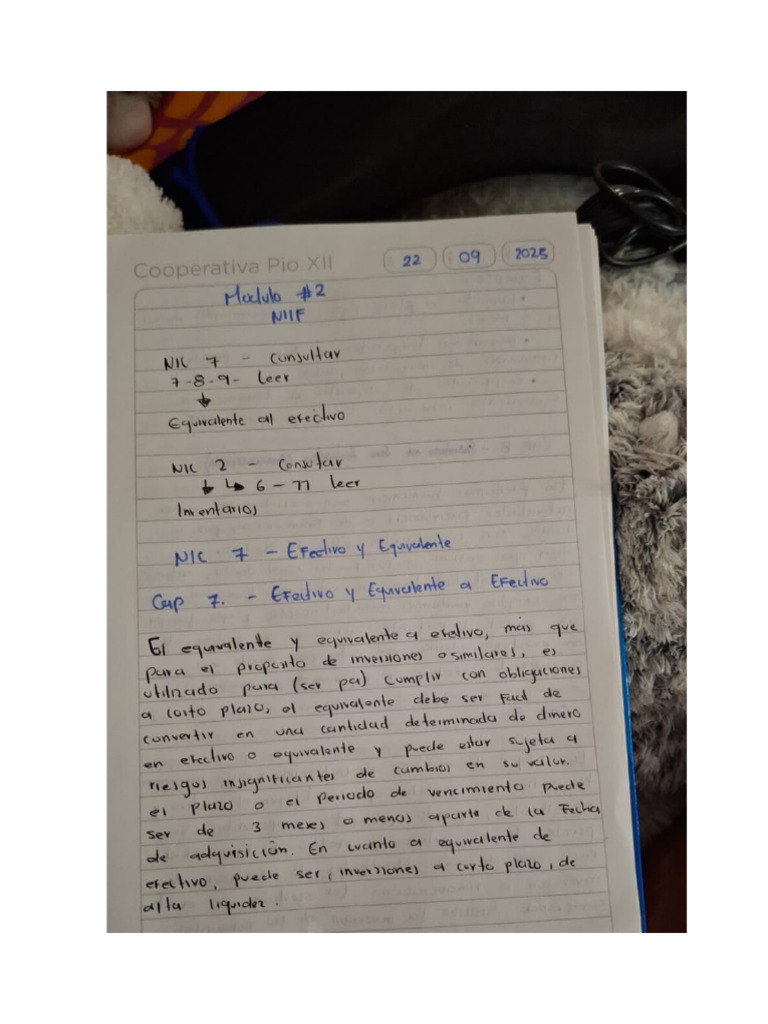 Cooperativa Pio XII 22 09 2025
Modulo #2
NIIF
NIC 7 - Consultar
7-8-9- Leer
Equivalente al efectivo
NIC 2 - Consultar
6 - 11 leer
Inventarios
NIC 7 - Efectivo y Equivalente
Cap 7. - Efectivo y Equivalente a Efectivo
El equivalente y equivalente a efectivo, más que
para el proposito de inversiones o similares, es
utilizado para (ser pa) cumplir con obligaciones
a corto plazo, el equivalente debe ser facil de
convertir en una cantidad determinada de dinero
en efectivo o equivalente y puede estar sujeta a
riesgos insignificantes de cambios en su valor.
el plazo o el periodo de vencimiento puede
ser de 3 meses o menos aparte de la Fecha
de adquisición. En cuanto a equivalente de
efectivo, puede ser, inversiones a corto plazo, de
alta liquidez.